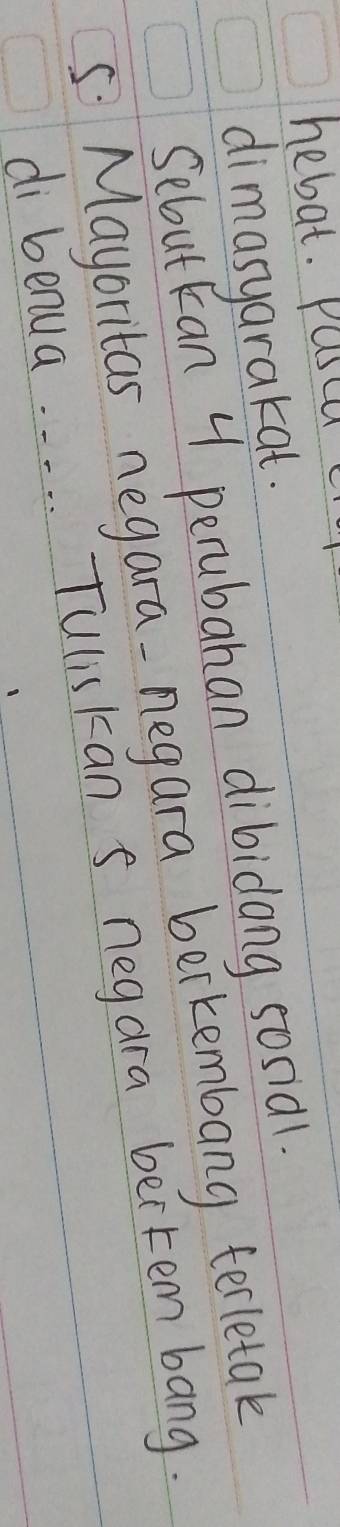 hebat.
dimasyarakat.
Sebutkan 4 perubahan dibidang sosial.
5. Mayoritas negara-negara berkembang terletak
di benua ...... Tuliskan 5 negara berkembang.